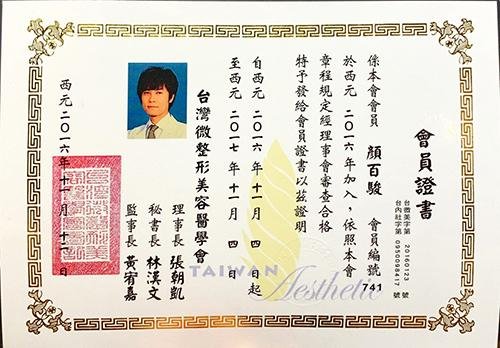 會員證書
台微美字第 20160123 號
台內社字第 0950098417 號
係本會會員 顏百駿 會員編號 741
於西元二〇一六年加入，依照本會
章程規定經理事會審查合格
特予發給會員證書以茲證明
自西元二〇一六年十一月 四 日起
至西元二〇一七年十一月 四 日
台灣微整形美容醫學會
理事長 張朝凱
秘書長 林漢文
監事長 黃宥嘉
西元二〇一六年十一月十一日
TAIWAN
Aesthetic